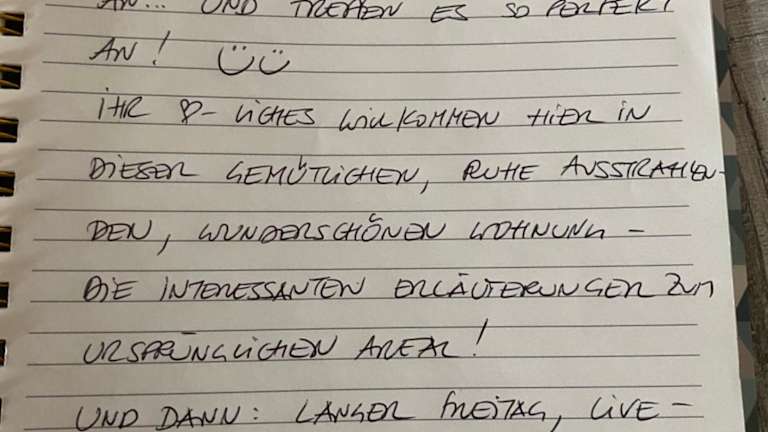 AN... UND TREFFEN ES SO PERFEKT
AN! ÜÜ
IHR ♡-LICHES WILLKOMMEN HIER IN
DIESER GEMÜTLICHEN, RUHE AUSSTRAHLEN-
DEN, WUNDERSCHÖNEN WOHNUNG –
DIE INTERESSANTEN ERLÄUTERUNGEN ZUM
URSPRÜNGLICHEN AREAL!
UND DANN: LANGER FREITAG, LIVE-